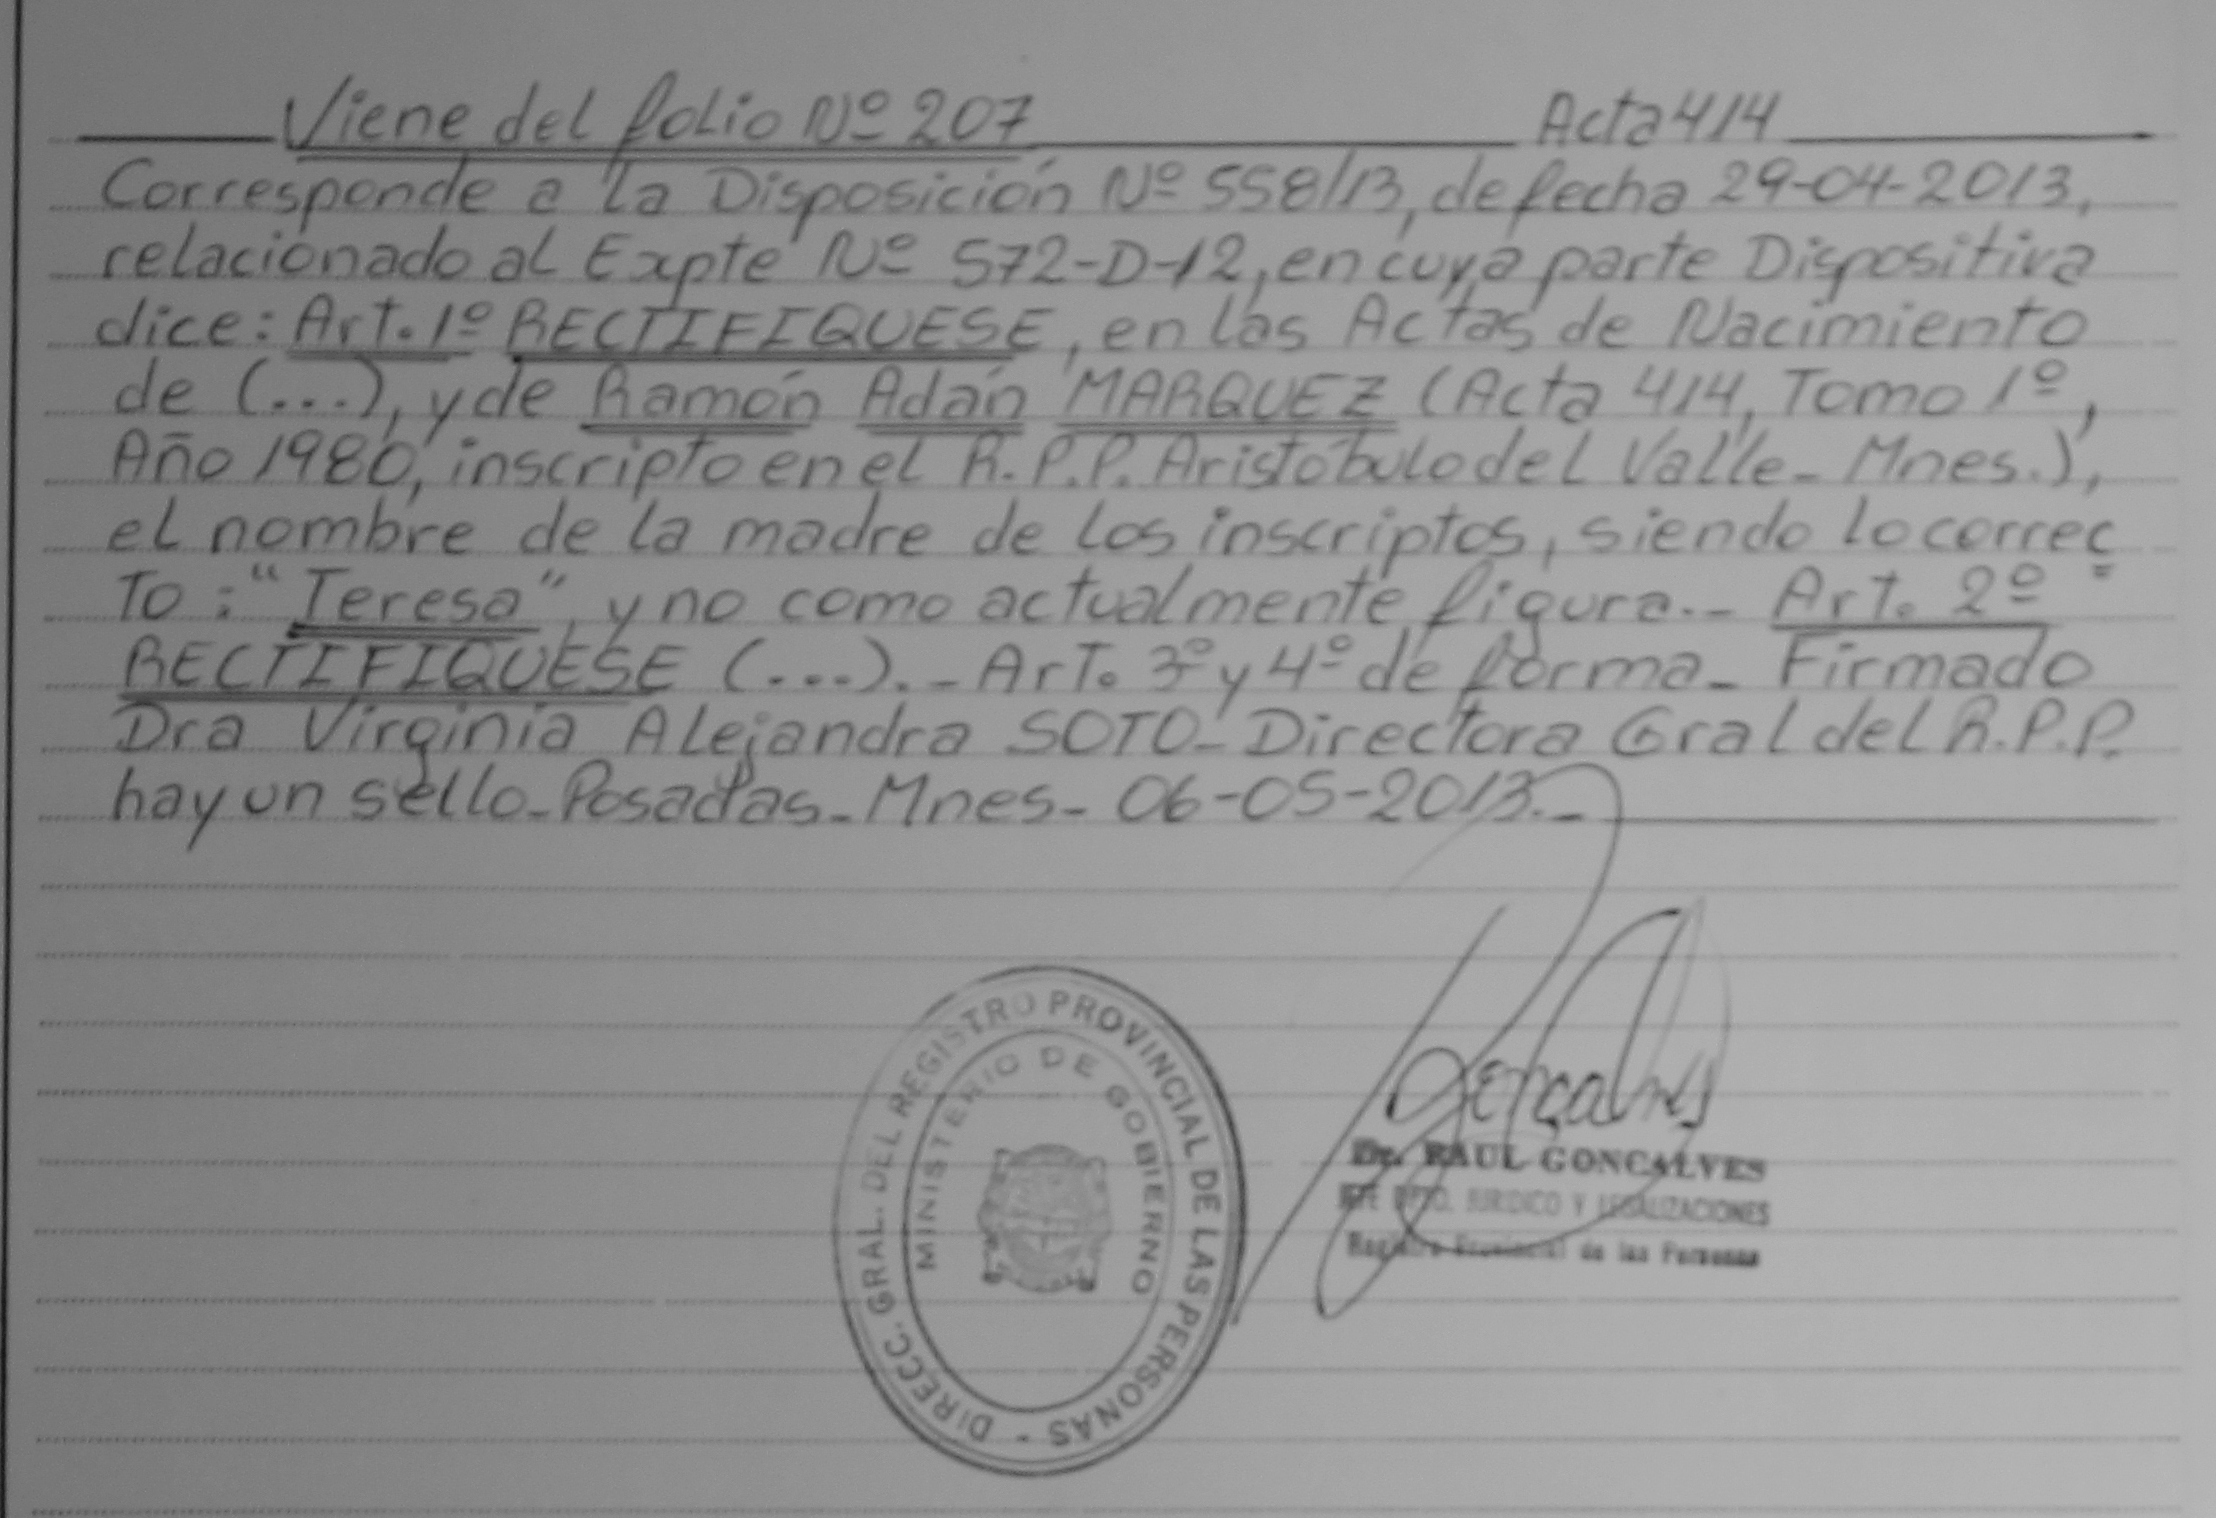 Viene del folio Nº 207 Acta 414
Corresponde a la Disposición Nº 558/13, de fecha 29-04-2013,
relacionado al Expte Nº 572-D-12, en cuya parte Dispositiva
dice: Art. 1º RECTIFIQUESE, en las Actas de Nacimiento
de (...), y de Ramón Adán MARQUEZ (Acta 414, Tomo 1º,
Año 1980, inscripto en el R.P.P. Aristóbulo del Valle - Mnes.),
el nombre de la madre de los inscriptos, siendo lo correc
to: "Teresa" y no como actualmente figura.- Art. 2º
RECTIFIQUESE (...).- Art. 3º y 4º de forma - Firmado
Dra Virginia Alejandra SOTO - Directora Gral del R.P.P.
hay un sello - Posadas - Mnes - 06-05-2013.-
DIRECC. GRAL. DEL REGISTRO PROVINCIAL DE LAS PERSONAS -
MINISTERIO DE GOBIERNO
Goncalves
Dr. RAUL GONCALVES
JEFE DPTO. JURIDICO Y LEGALIZACIONES
Registro Provincial de las Personas